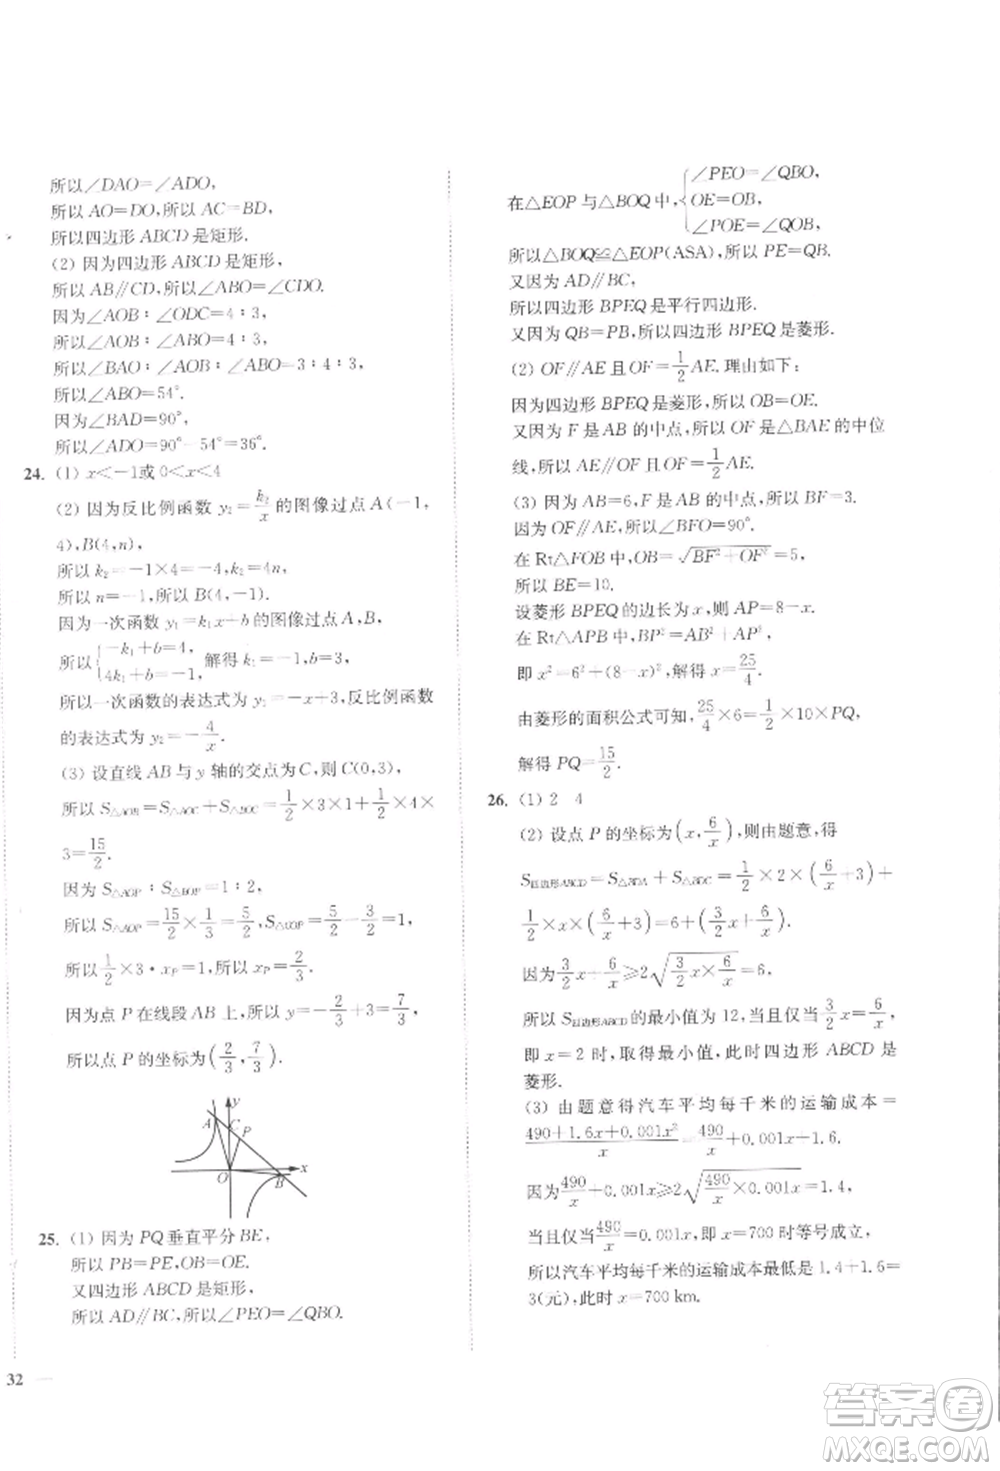 所以∠DAO=∠ADO,
所以 AO=DO,所以 AC=BD,
所以四边形 ABCD 是矩形.
(2) 因为四边形 ABCD 是矩形,
所以 AB∥CD,所以∠ABO=∠ODC.
因为∠AOB∶∠ODC=4∶3,
所以∠AOB∶∠ABO=4∶3,
所以∠BAO∶∠AOB∶∠ABO=3∶4∶3,
所以∠ABO=54°.
因为∠BAD=90°,
所以∠ADO=90°-54°=36°.
24. (1) x<-1或0<x<4
(2) 因为反比例函数 y₂=k₂/x 的图像过点 A(-1,
4),B(4,n),
所以 k₂=-1×4=-4,k₂=4n,
所以 n=-1,所以 B(4,-1).
因为一次函数 y₁=k₁x+b 的图像过点 A,点 B,
所以{-k₁+b=4, 4k₁+b=-1, 解得 k₁=-1,b=3,
所以一次函数的表达式为 y₁=-x+3,反比例函数
的表达式为 y₂=-4/x.
(3) 设直线 AB 与 y 轴的交点为C,则 C(0,3),
所以 S△AOB=S△AOC+S△BOC=1/2×3×1+1/2×4×
3=15/2.
因为 S△AOP∶S△BOP=1∶2,
所以 S△AOP=15/2×1/3=5/2,所以 S△COP=5/2-3/2=1,
所以1/2×3·x_P=1,所以 x_P=2/3.
因为点 P 在线段 AB 上,所以 y=-2/3+3=7/3,
所以点 P 的坐标为(2/3,7/3).
y
A C P
O B x
25. (1) 因为 PQ 垂直平分 BE,
所以 PB=PE,OB=OE.
又四边形 ABCD 是矩形,
所以 AD∥BC,所以∠PEO=∠QBO.
在△EOP 与△BOQ 中,{∠PEO=∠QBO, OE=OB, ∠POE=∠QOB,
所以△BOQ≌△EOP(ASA),所以 PE=QB.
又因为 AD∥BC,
所以四边形 BPEQ 是平行四边形.
又因为 QB=PB,所以四边形 BPEQ 是菱形.
(2) OF∥AE 且 OF=1/2AE.理由如下:
因为四边形 BPEQ 是菱形,所以 OB=OE.
又因为 F 是 AB 的中点,所以 OF 是△BAE 的中位
线,所以 AE∥OF 且 OF=1/2AE.
(3) 因为 AB=6,F 是 AB 的中点,所以 BF=3.
因为 OF∥AE,所以∠BFO=90°.
在 Rt△FOB 中,OB=√(BF²+OF²)=5,
所以 BE=10.
设菱形 BPEQ 的边长为 x,则 AP=8-x.
在 Rt△APB 中,BP²=AB²+AP²,
即 x²=6²+(8-x)²,解得 x=25/4.
由菱形的面积公式可知,25/4×6=1/2×10×PQ,
解得 PQ=15/2.
26. (1) 2 4
(2) 设点 P 的坐标为(x,6/x),则由题意,得
S四边形ABCD=S△BDA+S△BDC=1/2×2×(6/x+3)+
1/2×x×(6/x+3)=6+(3/2x+6/x).
因为3/2x+6/x≥2√(3/2x×6/x)=6,
所以 S四边形ABCD的最小值为 12,当且仅当3/2x=6/x,
即 x=2 时,取得最小值,此时四边形 ABCD 是
菱形.
(3) 由题意得汽车平均每千米的运输成本=
(490+1.6x+0.001x²)/x=490/x+0.001x+1.6.
因为490/x+0.001x≥2√(490/x×0.001x)=1.4,
当且仅当490/x=0.001x,即 x=700 时等号成立,
所以汽车平均每千米的运输成本最低是 1.4+1.6=
3(元),此时 x=700 km.
32
答案圈
MXQE.COM